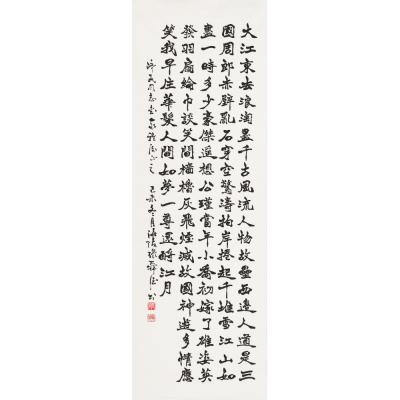 大江東去浪淘盡千古風流人物故壘西邊人道是三
國周郎赤壁亂石穿空驚濤拍岸捲起千堆雪江山如
畫一時多少豪傑遙想公瑾當年小喬初嫁了雄姿英
發羽扇綸巾談笑間檣櫓灰飛煙滅故國神遊多情應
笑我早生華髮人間如夢一尊還酹江月
同志 正之 己未冬月